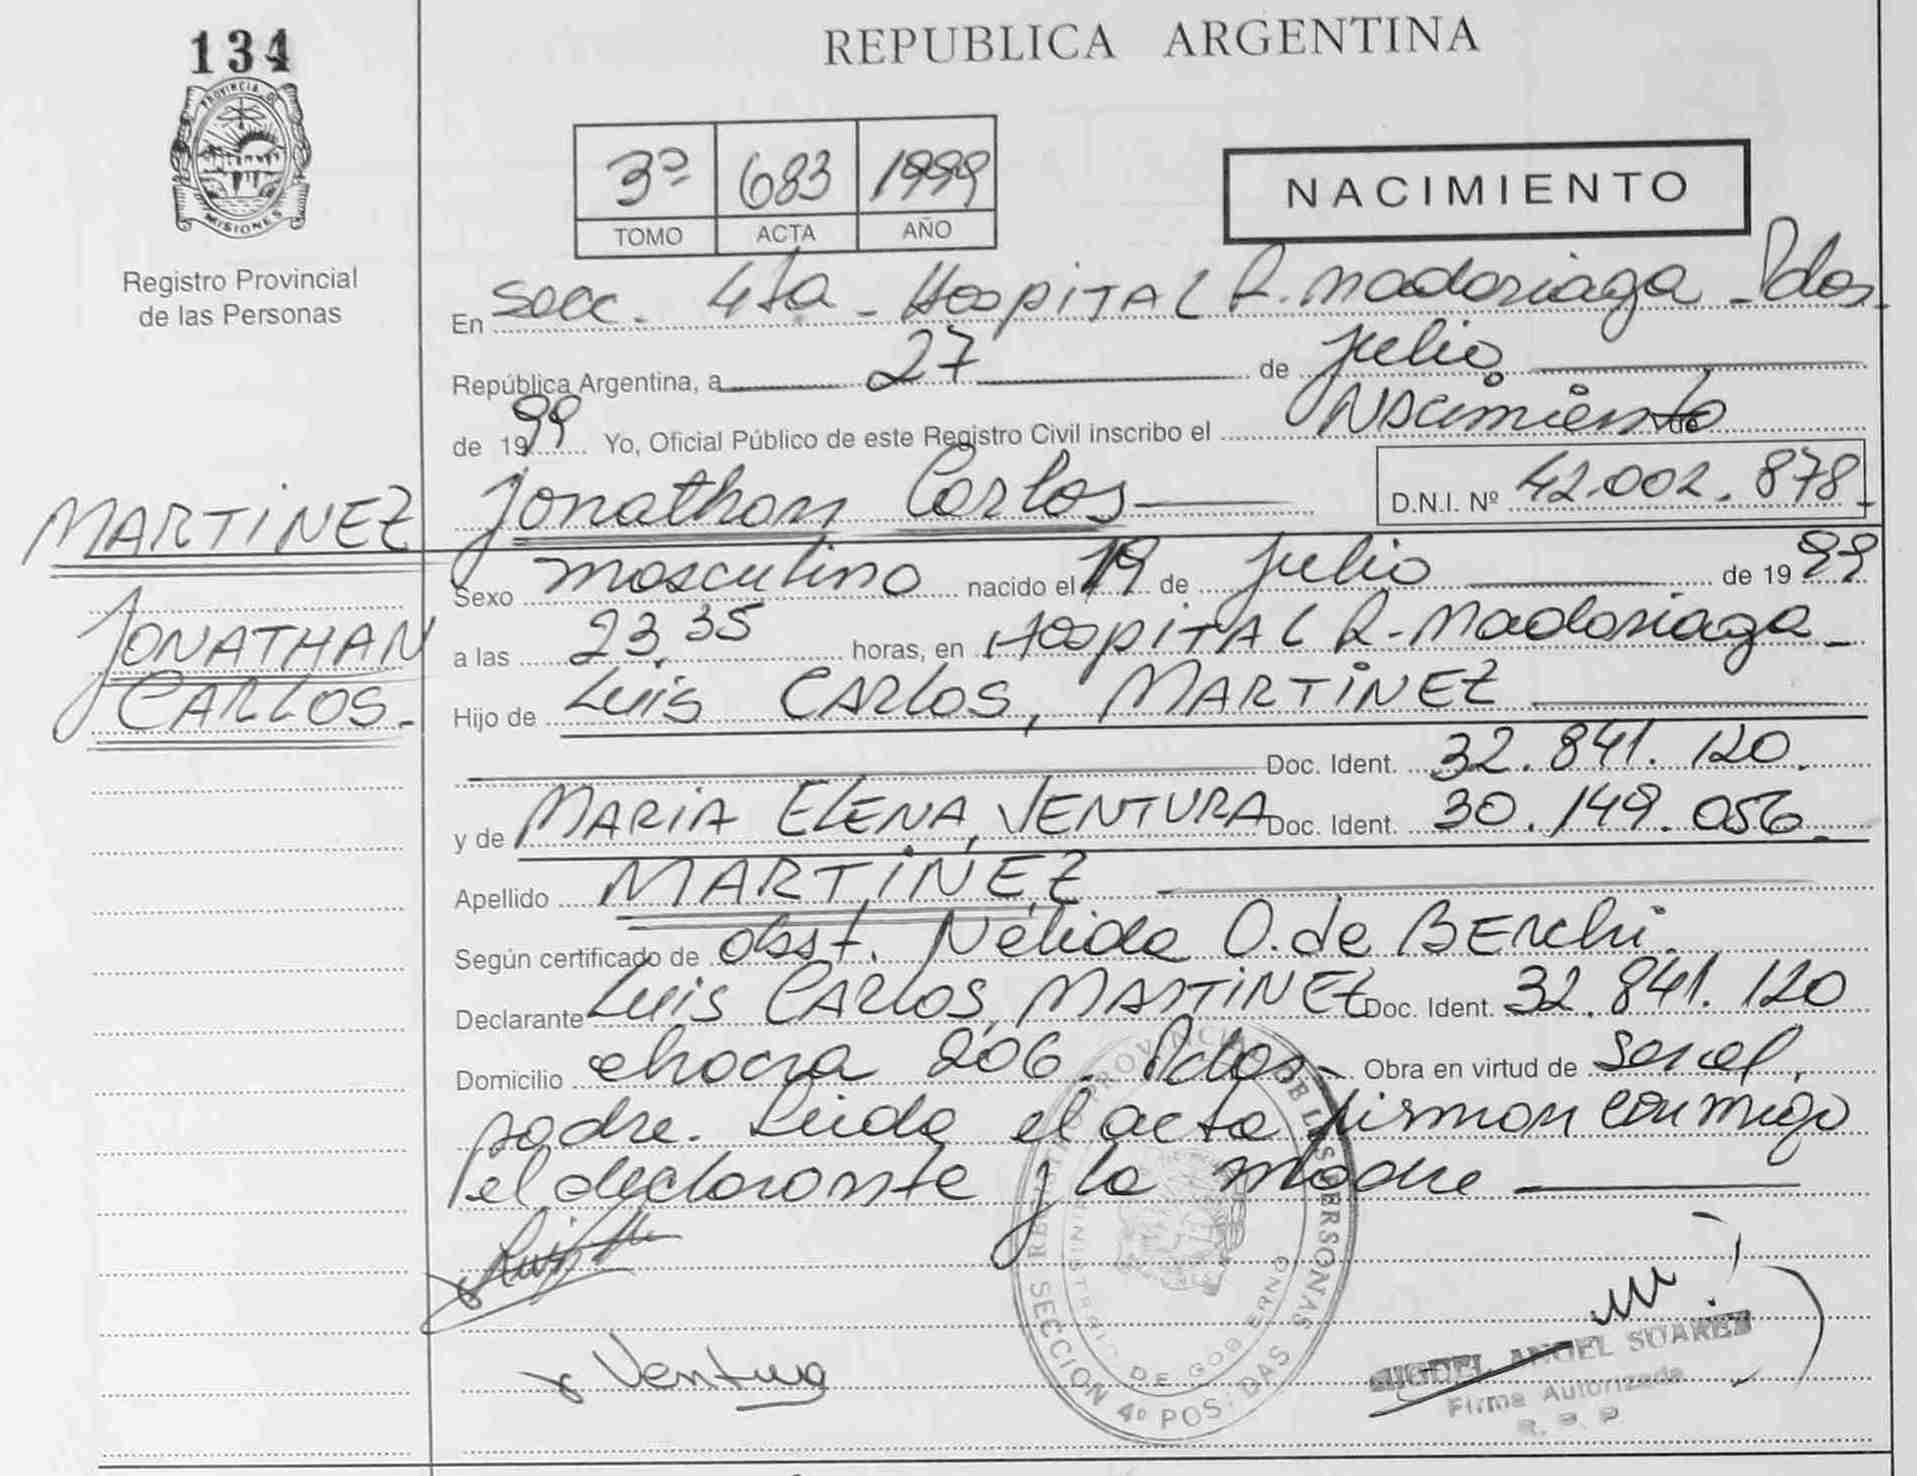 134
REPUBLICA ARGENTINA
PROVINCIA DE
MISIONES
Registro Provincial
de las Personas
3º 683 1999
TOMO ACTA AÑO
NACIMIENTO
En Secc. 4ta - Hospital R. Madariaga - Pdas.
República Argentina, a 27 de julio
de 1999 Yo, Oficial Público de este Registro Civil inscribo el Nacimiento de
MARTINEZ
JONATHAN
CARLOS.-
Jonathan Carlos D.N.I. Nº 42.002.878-
Sexo masculino nacido el 19 de julio de 1999
a las 23,35 horas, en Hospital R. Madariaga -
Hijo de Luis CARLOS, MARTINEZ
Doc. Ident. 32.841.120.
y de MARIA ELENA, VENTURA Doc. Ident. 30.149.056.
Apellido MARTINEZ
Según certificado de obst. Nélida O. de
Declarante Luis CARLOS, MARTINEZ Doc. Ident. 32.841.120
Domicilio chacra 206. Pdas - Obra en virtud de ser el
padre. Leida el acta firman conmigo
el declarante y la madre
Ventura
REGISTRO PROVINCIAL DE LAS PERSONAS
MINISTERIO DE GOBIERNO
SECCION 4º POSADAS
MIGUEL ANGEL SUAREZ
Firma Autorizada
R. P. P.